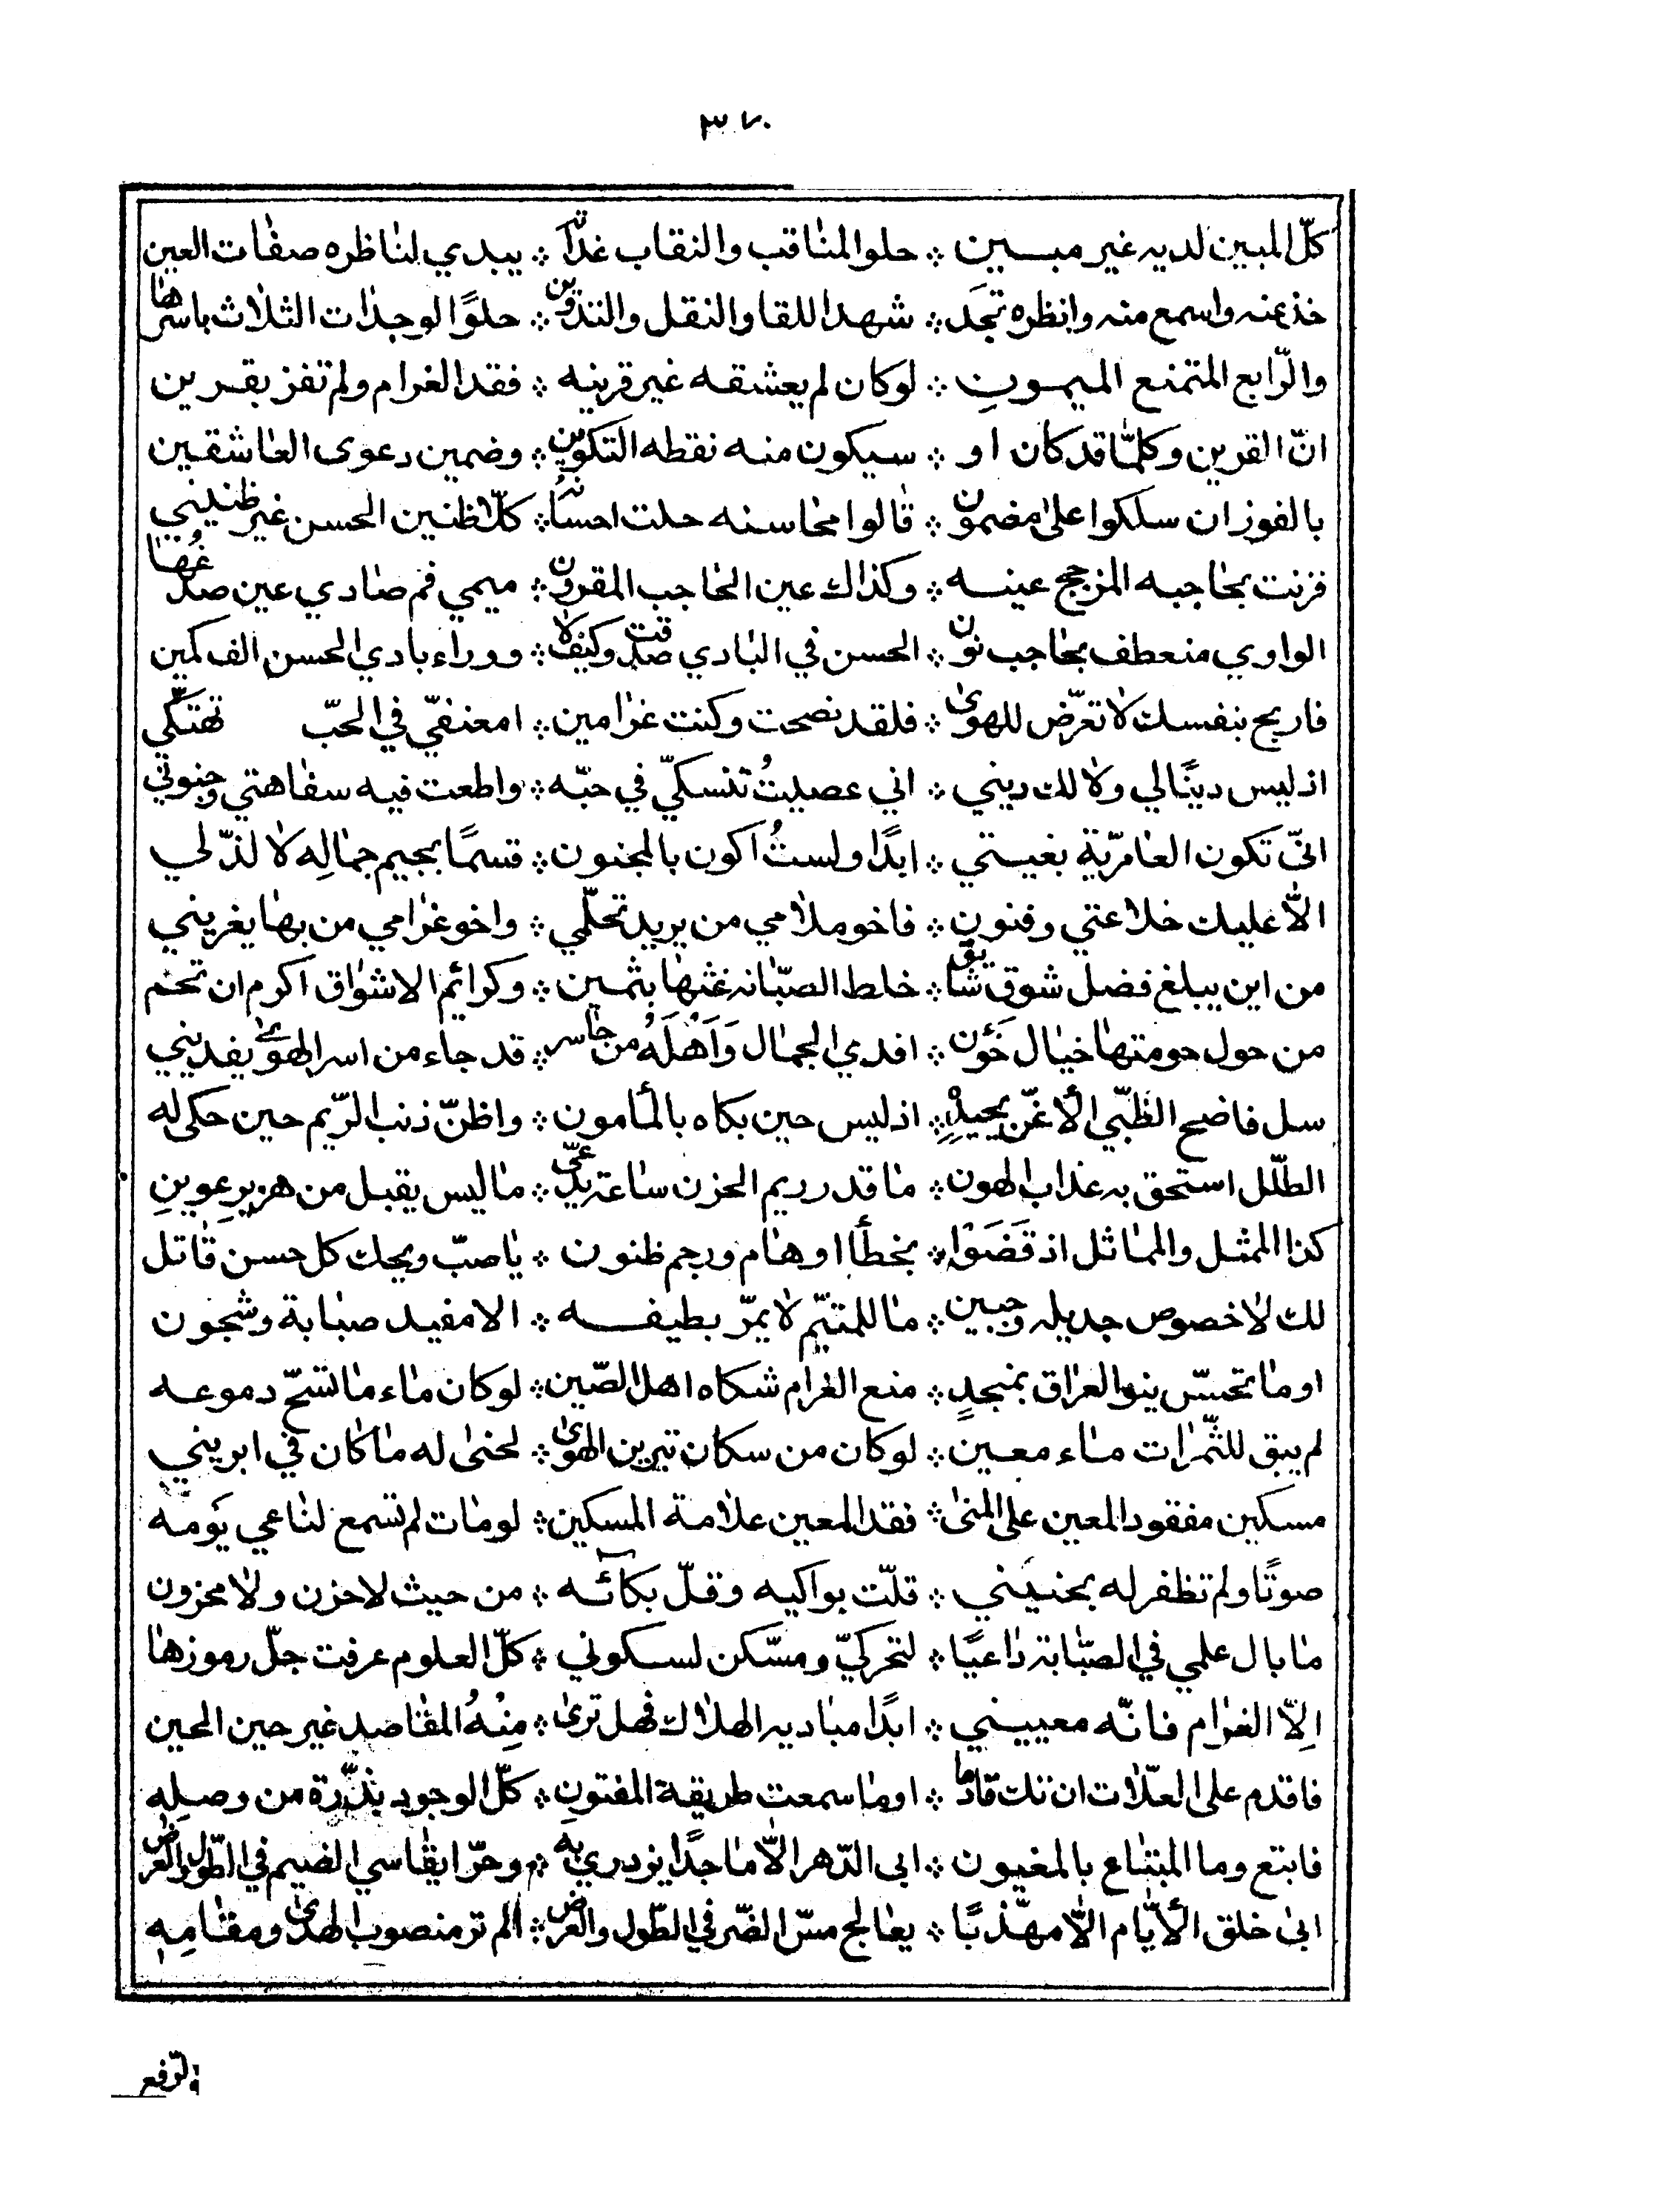 ٣٧٠
كلّ المبين لديه غير مبين ❊ حلو المناقب والنقاب غدًا ❊ يبدي لناظره صفات العين
خذ عنه واسمع منه وانظره تجد ❊ شهد اللقا والنقل والتذوين ❊ حلوًا لو جذات الثلاث باسرها
والرّابع المتمنع الميمونِ ❊ لو كان لم يعشقه غير قرينه ❊ فقد الغرام ولم تفز بقرين
انّ القرين وكلمّا قد كان او ❊ سيكون منه نقطه التكوين ❊ وضمين دعوى العاشقين
بالفوز ان سلكوا على مضمون ❊ قالوا محاسنه حلت احسانه ❊ كلّا ظنين الحسن غير ظنيني
قرنت بحاجبه المزجج عينه ❊ وكذاك عين الحاجب المقرون ❊ ميمي فم صادي عين صدغها
الواوي منعطف بحاجب نون ❊ الحسن في البادي صدقت وكيف لا ❊ ووراء بادي الحسن الف كمين
فاربح بنفسك لا تعرّض للهوى ❊ فلقد نصحت وكنت غرامين ❊ امعنفيّ في الحبّ تهتكي
اذ ليس دينًا لي ولا لك ديني ❊ اني عصيتُ تنسكيّ في حبّه ❊ واطعت فيه سفاهتي وجنوني
انّى تكون العامريّة بغيتي ❊ ابدًا ولستُ اكون بالمجنون ❊ قسمًا بجيم جمالِه لا لذّ لي
الّا عليك خلاعتي وفنون ❊ فاخو ملامي من يريد تحلّمي ❊ واخو غرامي من بها يغريني
من اين يبلغ فضل شوق شايق ❊ خلط الصبّانه غثها بثمين ❊ وكرائم الاشواق اكرم ان تحم
من حول حومتها خيال خَؤن ❊ افدي الجمال وَاَهْلَهُ من خاسر ❊ قد جاء من اسر الهوى يفديني
سل فاضح الظّبّي الأغنّ بجيدِهِ ❊ اذ ليس حين بكاه بالمأمون ❊ واظنّ ذنب الرّيم حين حكى له
الطّلل استحق به عذاب الهون ❊ ما قد ريم الحزن ساعة يدّعي ❊ ما ليس يقبل من هزبرِ عوينِ
كذا الممثل والمماثل اذ قَضَوْا ❊ بخطأ اوهام ورجم ظنون ❊ يا صبّ ويحك كل حسن قاتل
لك لا خصوص جديله وجبين ❊ ما للمتيّم لا يمرّ بطيفه ❊ الا مفيد صبابة وشجون
او ما تحسّس بنو العراق بمنجدٍ ❊ منع الغرام شكاه اهل الصّين ❊ لو كان ماء ما تسحّ دموعه
لم يبق للثّمرات ماء معين ❊ لو كان من سكان تبرين الهوى ❊ لحنى له ما كان في ابريني
مسكين مفقود المعين على المنى ❊ فقد المعين علامة المسكين ❊ لو مات لم تسمع لناعي يَومه
صوتًا ولم تظفر له بحنيني ❊ قلّت بواكيه وقلّ بكائه ❊ من حيث لا حزن ولا محزون
ما بال علمي في الصبّابة داعيًا ❊ لتحركيّ ومسّكن لسكوني ❊ كلّ العلوم عرفت جلّ رموزها
اِلّا الغرام فانّه معييني ❊ ابدًا مباديه الهلاك فهل ترى ❊ مِنْهُ المقاصد غير حين الحين
فاقدم على العلّات ان تك قادما ❊ اوما سمعت طريقة المفتونِ ❊ كلّ الوجود بذّرة من وصلِهِ
فابتع وما المبتاع بالمغبون ❊ ابى الدّهر الّا ماجدًا يزدري به ❊ وحرّا يقاسي الضيم في الطّول والعرض
ابى خلق الأيّام الّا مهذّبًا ❊ يعالج مسّ الضّر في الطّول والعرض ❊ الم تر منصوب الهدى ومقامِهِ
الرّفع